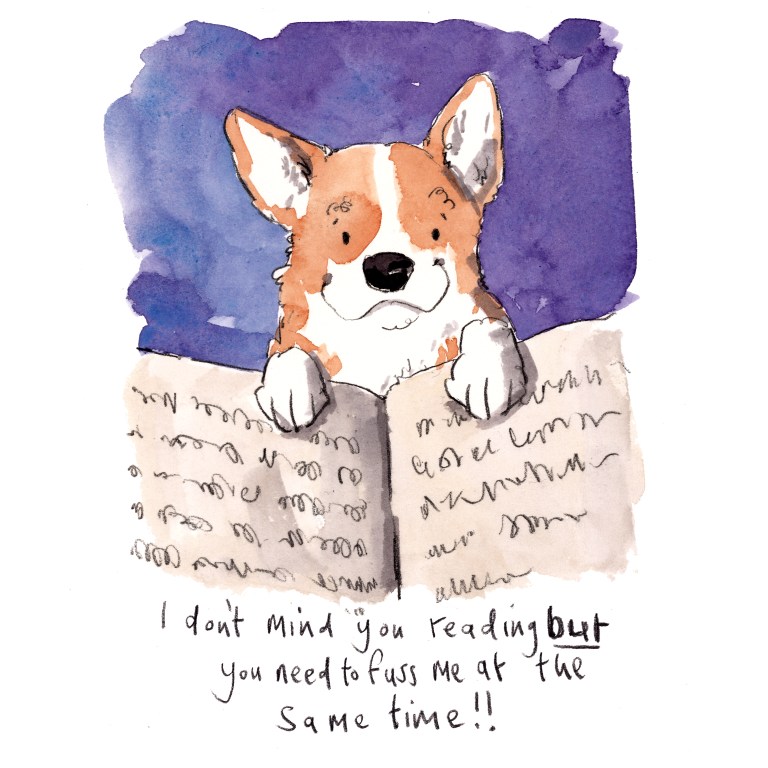 I don't mind you reading but
you need to fuss me at the
same time!!